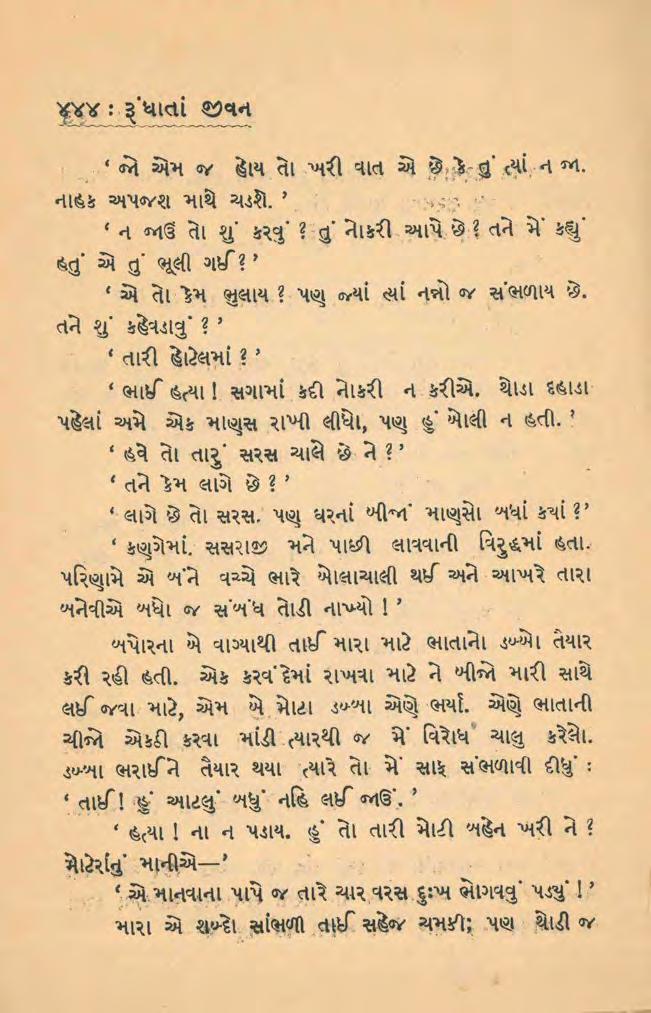 ૪૪૪ : રૂંધાતાં જીવન
‘ જો એમ જ હોય તો ખરી વાત એ છે કે તું ત્યાં ન જા.
નાહક અપજશ માથે ચડશે. ’
‘ ન જાઉં તો શું કરવું ? તું નોકરી આપે છે ? તને મેં કહ્યું
હતું એ તું ભૂલી ગઈ ? ’
‘ એ તો કેમ ભુલાય ? પણ જ્યાં ત્યાં નન્નો જ સંભળાય છે.
તને શું કહેવડાવું ? ’
‘ તારી હોટેલમાં ? ’
‘ ભાઈ હત્યા ! સગામાં કદી નોકરી ન કરીએ. થોડા દહાડા
પહેલાં અમે એક માણસ રાખી લીધો, પણ હું બોલી ન હતી. ’
‘ હવે તો તારું સરસ ચાલે છે ને ? ’
‘ તને કેમ લાગે છે ? ’
‘ લાગે છે તો સરસ. પણ ઘરનાં બીજાં માણસો બધાં ક્યાં ? ’
‘ કણગેમાં. સસરાજી મને પાછી લાવવાની વિરુદ્ધમાં હતા.
પરિણામે એ બંને વચ્ચે ભારે બોલાચાલી થઈ અને આખરે તારા
બનેવીએ બધો જ સંબંધ તોડી નાખ્યો ! ’
બપોરના બે વાગ્યાથી તાઈ મારા માટે ભાતાનો ડબ્બો તૈયાર
કરી રહી હતી. એક કરવંદેમાં રાખવા માટે ને બીજો મારી સાથે
લઈ જવા માટે, એમ બે મોટા ડબ્બા એણે ભર્યા. એણે ભાતાની
ચીજો એકઠી કરવા માંડી ત્યારથી જ મેં વિરોધ ચાલુ કરેલો.
ડબ્બા ભરાઈને તૈયાર થયા ત્યારે તો મેં સાફ સંભળાવી દીધું :
‘ તાઈ ! હું આટલું બધું નહિ લઈ જાઉં. ’
‘ હત્યા ! ના ન પડાય. હું તો તારી મોટી બહેન ખરી ને ?
મોટેરાંનું માનીએ—’
‘ એ માનવાના પાપે જ તારે ચાર વરસ દુઃખ ભોગવવું પડ્યું ! ’
મારા એ શબ્દો સાંભળી તાઈ સહેજ ચમકી; પણ થોડી જ